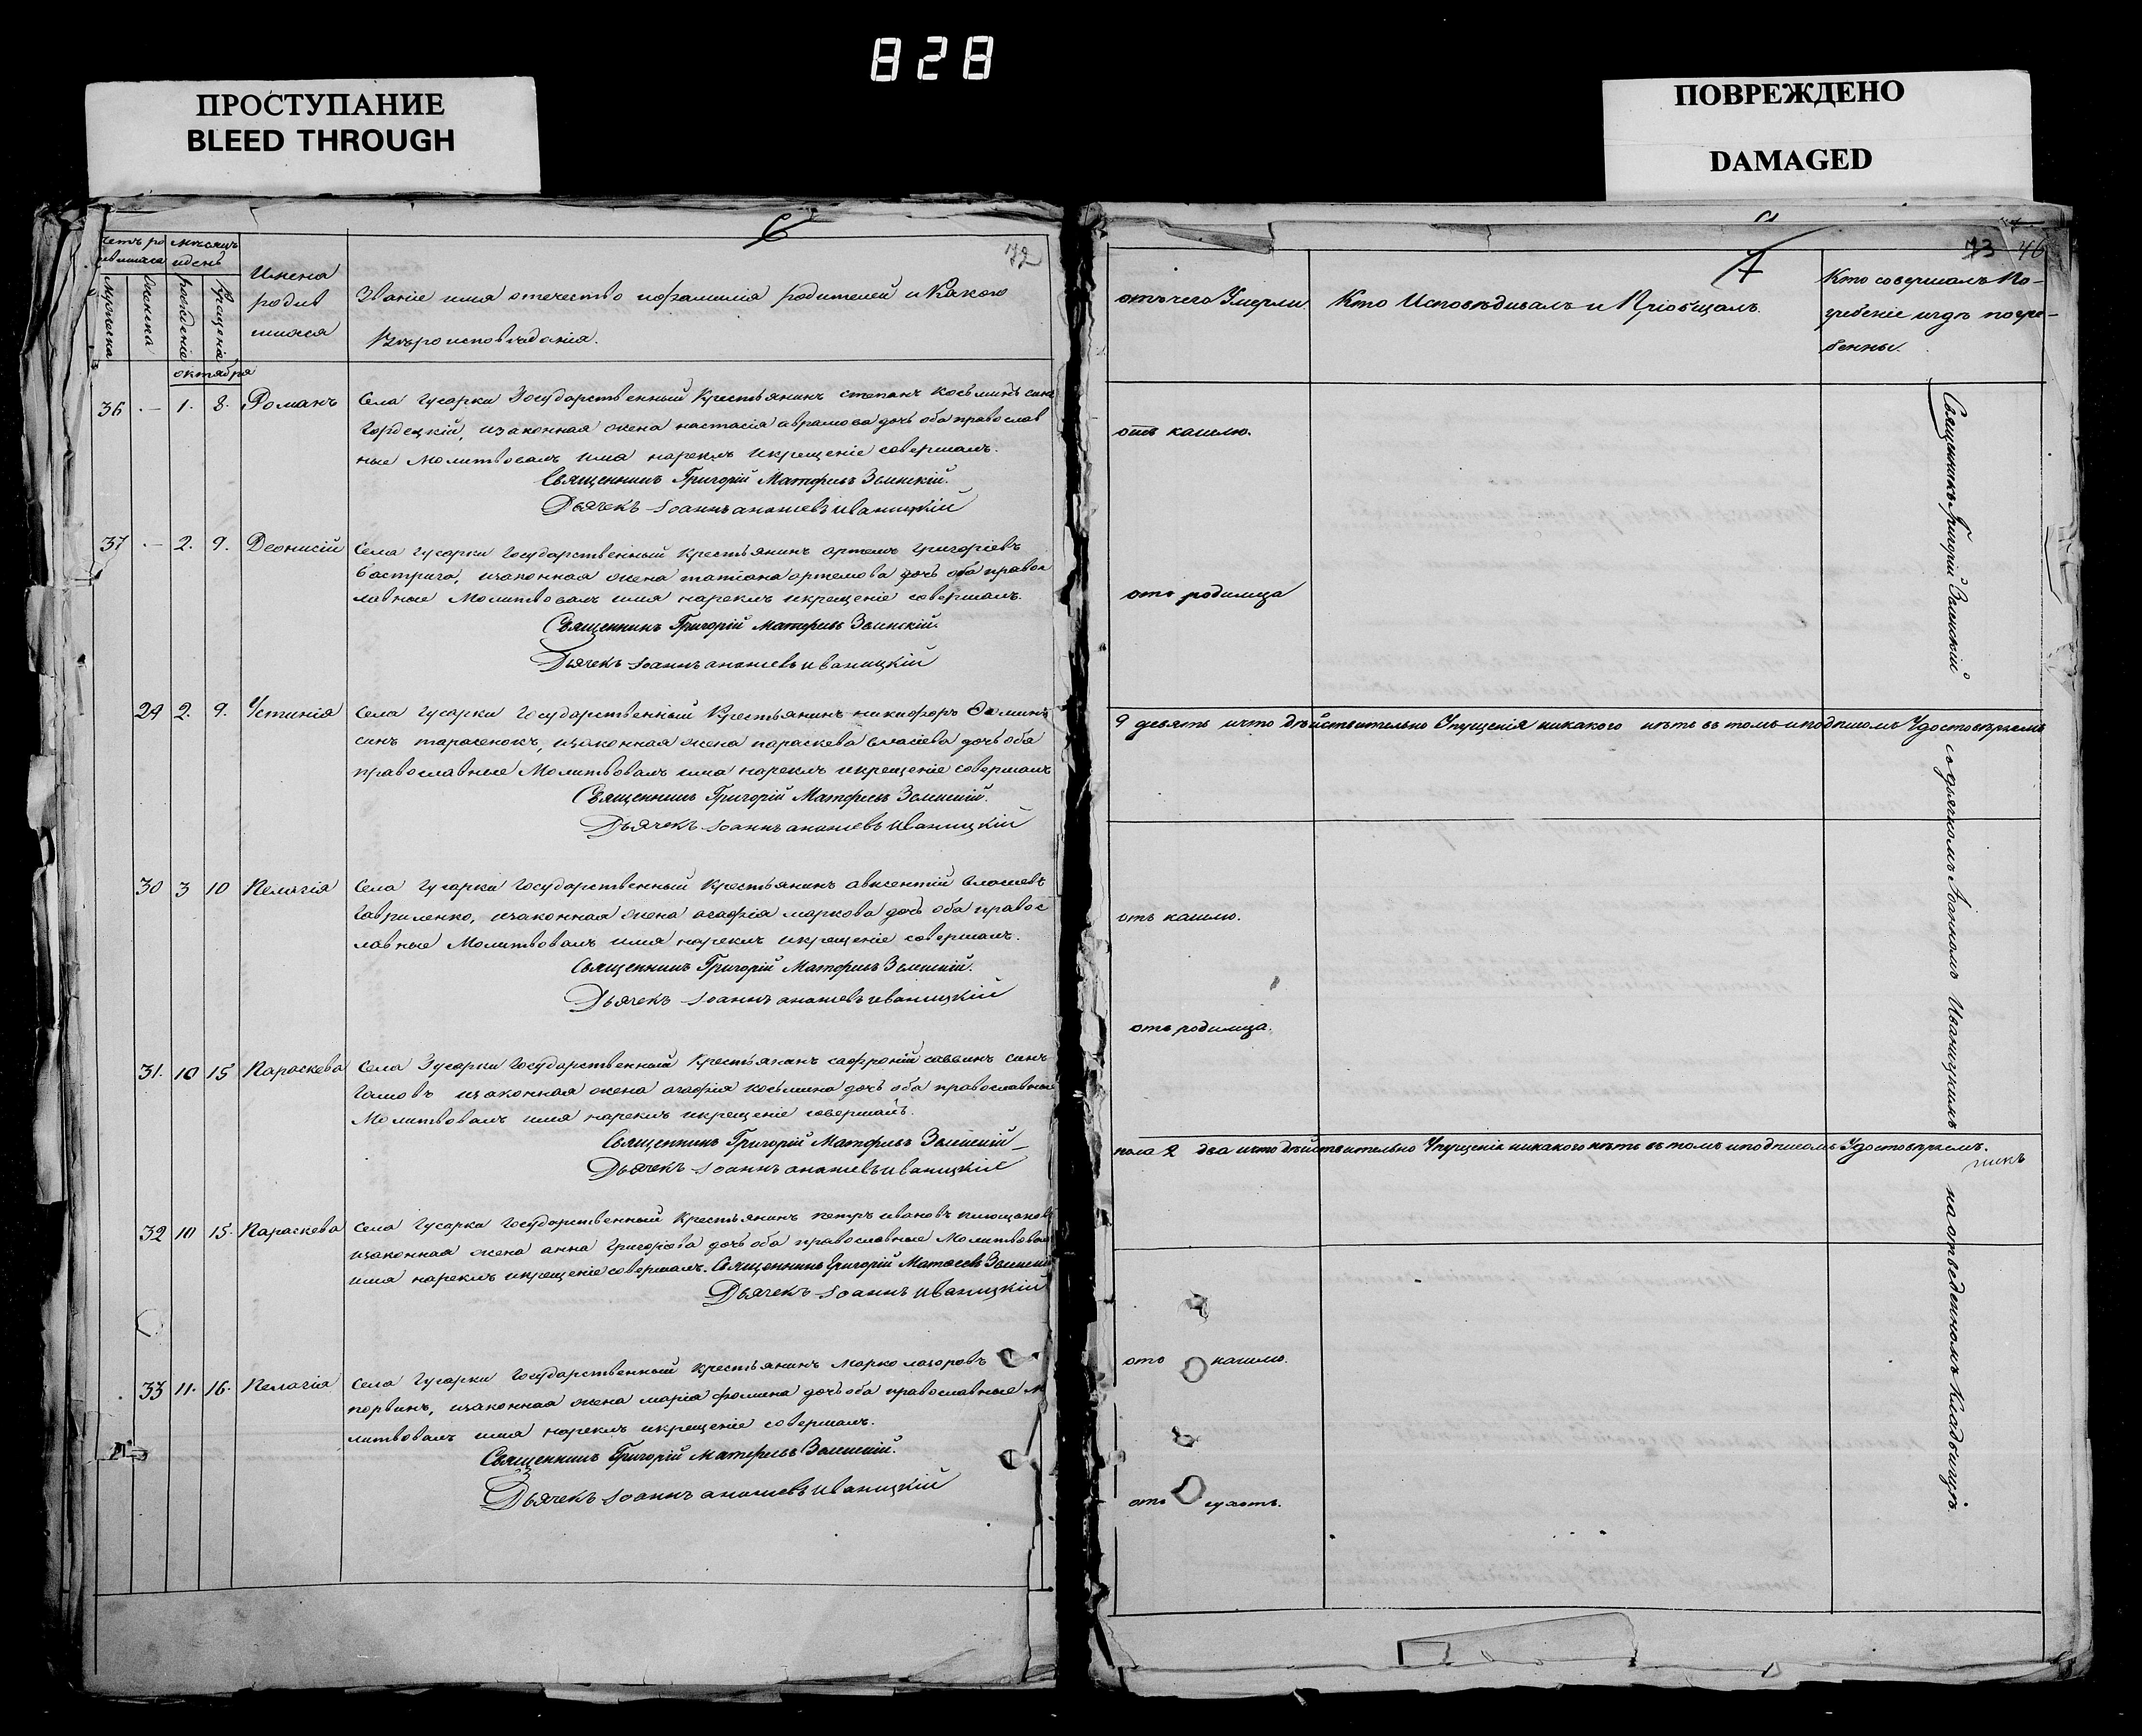 828
ПРОСТУПАНИЕ
BLEED THROUGH
ПОВРЕЖДЕНО
DAMAGED
72
мѣсяцъ
идень
Имена
родив
шихся
Званіе имя отечество ифамилія родителей и Какого
Вѣроисповѣданія.
мужеска
женска
рожденіе
крещеніе
октября
36 — 1. 8. Романъ Села Гусарки Государственный Крестьянинъ степанъ Косьминъ синъ
Гордецкій, изаконная жена настасія аврамова дочь оба православ
ные Молитвовалъ имя нарекъ икрещеніе совершалъ.
Священникъ Григорій Матфіевъ Зелинскій.
Дьячекъ Іоаннъ ананіевъ иваницкій
37 — 2. 9. Деонисій Села Гусарки Государственный Крестьянинъ артемъ Григоріевъ
бастрига, изаконная жена татіана артемова дочь оба правос
лавные Молитвовалъ имя нарекъ икрещеніе совершалъ.
Священникъ Григорій Матфіевъ Зелинскій.
Дьячекъ Іоаннъ ананіевъ иваницкій
29 2. 9. Устинія Села Гусарки Государственный Крестьянинъ никифоръ Фоминъ
синъ тарасенокъ, изаконная жена параскева власіева дочь оба
православные Молитвовалъ имя нарекъ икрещеніе совершалъ
Священникъ Григорій Матфіевъ Зелинскій.
Дьячекъ Іоаннъ ананіевъ иваницкій
30 3 10 Пелагія Села Гусарки Государственный Крестьянинъ авксентій власіевъ
Гавриленко, изаконная жена агафія маркова дочь оба правос
лавные Молитвовалъ имя нарекъ икрещеніе совершалъ.
Священникъ Григорій Матфіевъ Зелинскій.
Дьячекъ Іоаннъ ананіевъ иваницкій
31. 10 15 Параскева Села Гусарки Государственный Крестьянинъ сафроній саввинъ синъ
изаконная жена агафія косьмина дочь оба православные
Молитвовалъ имя нарекъ икрещеніе совершалъ.
Священникъ Григорій Матфіевъ Зелинскій
Дьячекъ Іоаннъ ананіевъ иваницкій
32 10 15. Параскева Села Гусарки Государственный Крестьянинъ петръ ивановъ
изаконная жена анна Григоріева дочь оба православные Молитвовалъ
имя нарекъ икрещеніе совершалъ. Священникъ Григорій Матфеевъ Зелинскій
Дьячекъ Іоаннъ иваницкій
33 11. 16. Пелагія Села Гусарки Государственный Крестьянинъ Марко лазоровъ
изаконная жена марія фомина дочь оба православные М
литвовалъ имя нарекъ икрещеніе совершалъ.
Священникъ Григорій Матфіевъ Зелинскій.
Дьячекъ Іоаннъ ананіевъ иваницкій
73 46
отъ чего Умерли. Кто Исповѣдивалъ и Пріобщалъ.
Кто совершалъ По-
гребеніе игдѣ погре-
бенны.
отъ кашлю.
отъ родимца
9 девять ичто дѣйствительно Упущенія никакого нѣтъ въ томъ иподписомъ Удостовѣряемъ
отъ кашлю.
отъ родимца.
пола 2 два ичто дѣйствительно Упущенія никакого нѣтъ въ томъ иподписомъ Удостовѣряемъ.
отъ кашлю.
отъ
Священникъ Григорій Зелинскій со дьячкомъ Іоанномъ Иваницкимъ на отведенномъ Кладбищѣ.